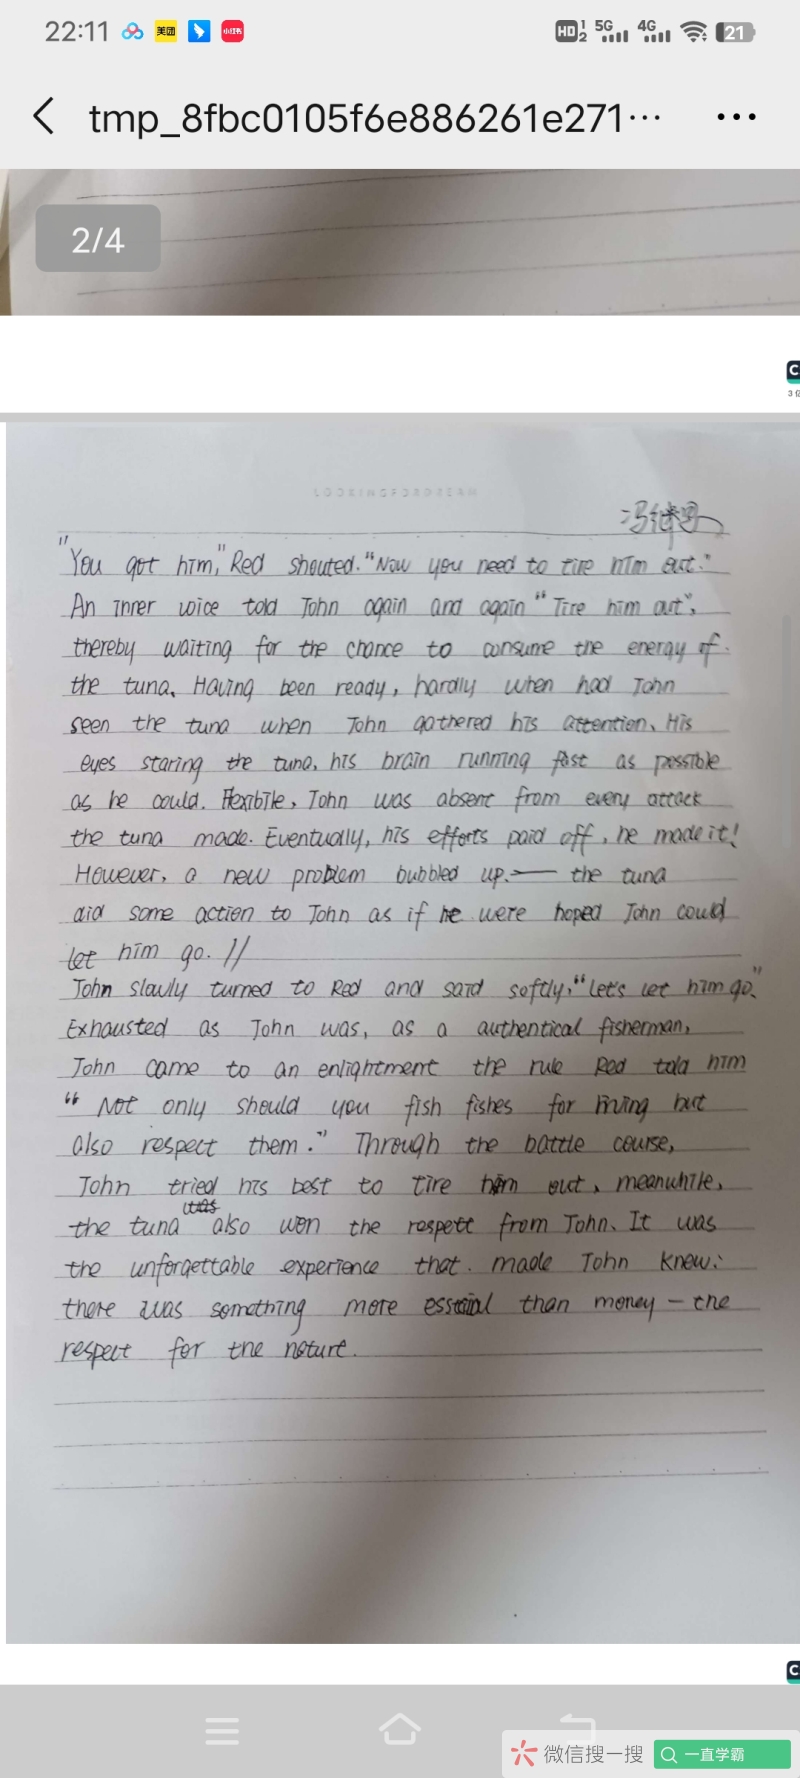 22:11 美团 小红书 HD 1 2 5G 4G 21
tmp_8fbc0105f6e886261e271···
2/4
C
3亿
LOOKINGFORDREAM
冯继
"You got him," Red shouted. "Now you need to tire him out."
An inner voice told John again and again "Tire him out",
thereby waiting for the chance to consume the energy of
the tuna. Having been ready, hardly when had John
seen the tuna when John gathered his attention. His
eyes staring the tuna, his brain running fast as possible
as he could. Flexibile, John was absent from every attack
the tuna made. Eventually, his efforts paid off, he made it!
However, a new problem bubbled up. — the tuna
did some action to John as if he were hoped John could
let him go. //
John slowly turned to Red and said softly, "Let's let him go."
Exhausted as John was, as a authentical fisherman,
John came to an enlightment the rule Red told him
" Not only should you fish fishes for living but
also respect them." Through the battle course,
John tried his best to tire him out, meanwhile,
the tuna also won the respett from John. It was
the unforgettable experience that made John knew:
there was something more than money – the
respect for the nature.
C
微信搜一搜 一直学霸